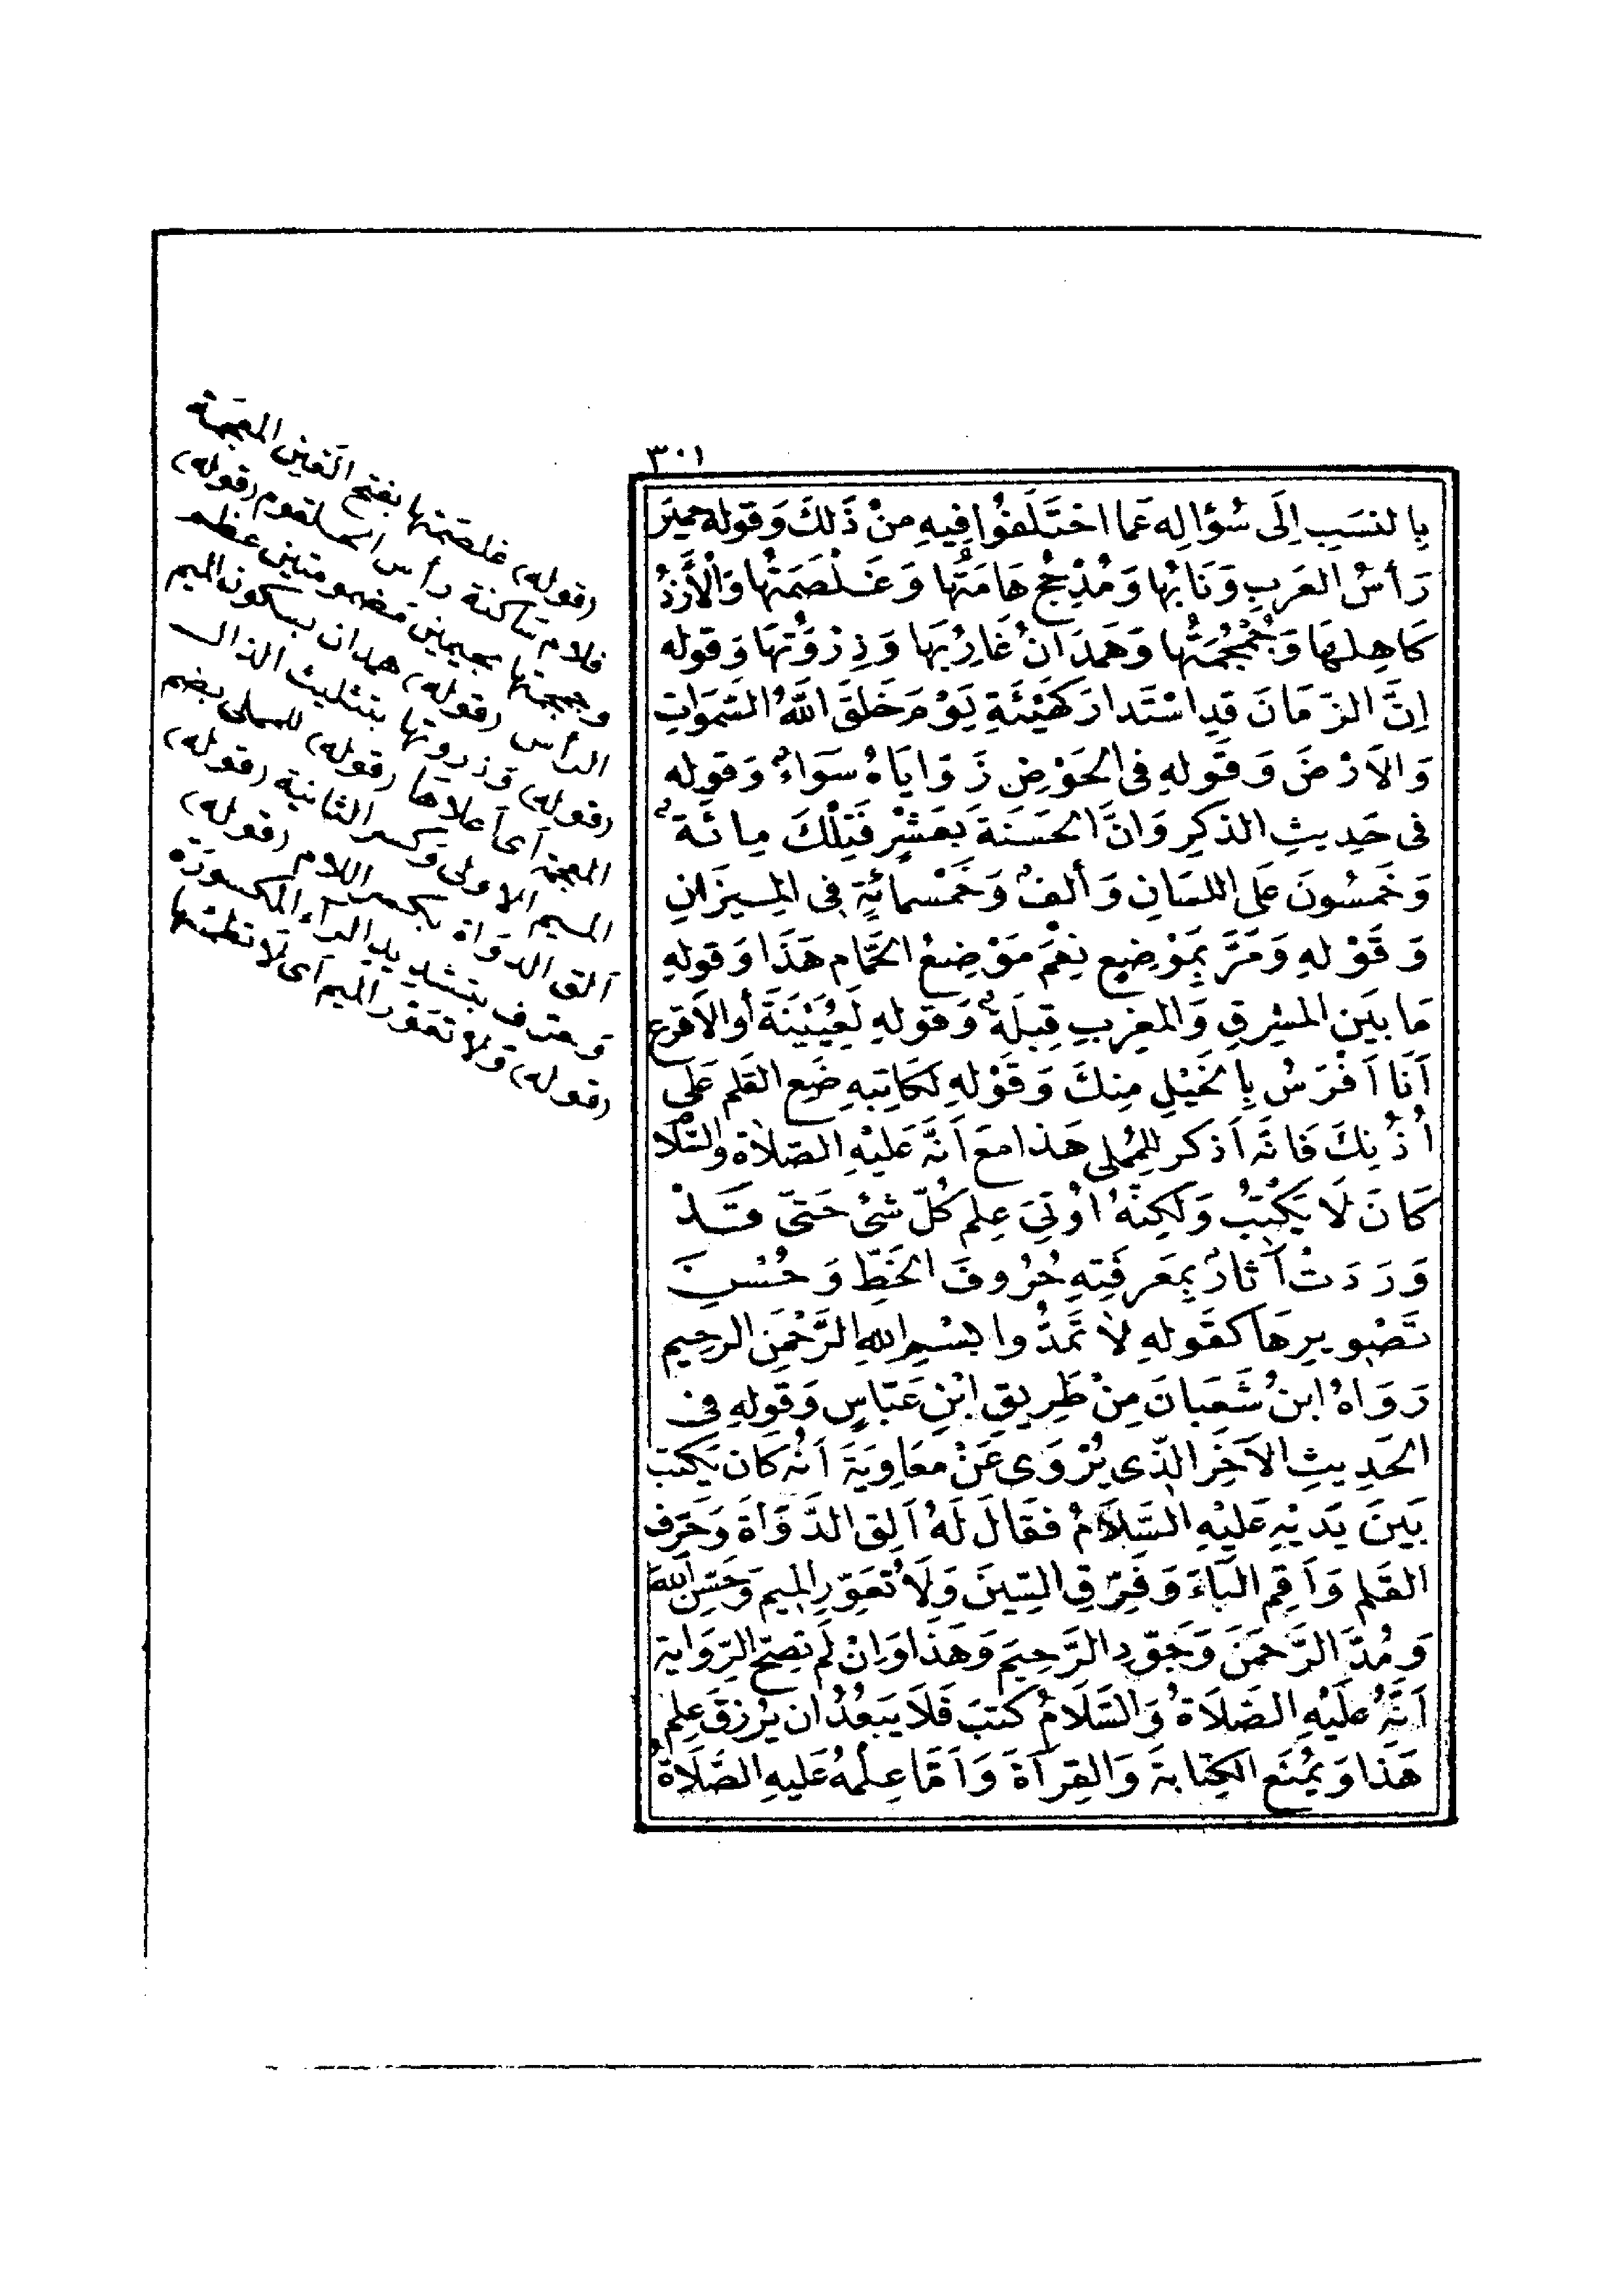 ٣٠١
بِالنسَبِ اِلَى سُؤالِه عَما اختَلَفُوا فِيهِ مِنْ ذَلكَ وَقوله حِميَر
رَأسُ العَربِ وَنَابُها وَمُذْحِجُ هَامَتُها وَغَلْصَمَتُها وَالْاَزْدُ
كَاهِلهَا وَجُمْجُمَتُها وَهَمدَانُ غَارِبهَا وَذِرْوَتُهَا وَقوله
اِنَّ الزمَانَ قدِاسْتَدارَ كَهَيْئَةِ يَوْمَ خَلقَ اللهُ السَّموَاتِ
وَالاَرْضَ وَقَولهِ فِى الحَوْضِ زَوَايَاهُ سَوَاءٌ وَقوِله
فى حَدِيثِ الذكرِ وَانَّ الحَسَنَةَ بعَشْرٍ فَتِلْكَ مِائَةٌ
وَخَمسُونَ عَلَى اللسَانِ وَألفٌ وَخَمْسمِائَةٍ فِى المِيزَانِ
وَقَوْلهِ وَمَرَّ بِمَوْضِعٍ نِعْمَ مَوْضِعُ الحَمَّامِ هَذَا وَقولهِ
مَا بيَن المَشرِقِ وَالمغِربِ قِبلَةٌ وَقولهِ لَعُيَيْنَةَ أوالاَقرَعِ
اَنَا اَفْرَسُ بِالخَيْلِ مِنكَ وَقَوْلهِ لكَاتِبهِ ضَعِ القلَم عَلَى
اُذُنِكَ فَانَّه اَذكرَ لِلمُملِى هَذا مَعَ اَنَّه عَليْهِ الصّلاَة والسّلاَم
كَانَ لَا يَكْتبُ وَلَكِنهُ اُوتِىَ عِلم كُلّ شئٍ حَتىَّ قَدْ
وَرَدَتْ آثارٌ بِمَعرِفَتِهِ حُرُوفَ الخَطِّ وَحُسْنَ
تَصْوِيرِهَا كقَولهِ لاَ تَمُدُّوا بِسْمِ اللهِ الرَّحْمَنِ الرحِيمِ
رَوَاهُ ابنُ شَعَبانَ مِنْ طَرِيقِ ابْنِ عَبّاسٍ وَقَولهِ فى
الحَدِيثِ الآخَرِ الذّى يُرْوَى عَنْ مُعَاوِيَةَ اَنُه كَان يَكتب
بَينَ يَدَيْهِ عَليْهِ السَّلاَمُ فقَالَ لَهُ اَلِقِ الدَّوَاةَ وَحَرِّف
القَلمَ وَاَقِمِ البَاءَ وَفَرِّقِ السِّينَ وَلَا تُعَوِّرِ المِيمَ وَحَسِّنِ اللهَ
وَمُدَّ الرَّحمَنَ وَجَوِّدِ الرَّحِيمَ وَهَذَا وَاِنْ لَم تصِحَّ الرِّوَاية
اَنَّهُ عَلَيْهِ الصَّلاَةُ وَالسَّلاَمُ كتبَ فَلاَ يَبعُدُ ان يُرزقَ عِلم
هَذا وَيُمنَع الكِتابةَ وَالقِرآةَ وَاَمَّا عِلْمُهُ عَليهِ الصَّلاَةُ
(قوله) غلصمتها بفتح الغين المعجمة
فلام ساكنة رأس الحلقوم (قوله)
وجمجمتها بجيمين مضمومتين عظم
الرأس (قوله) همدان بسكون الميم
(قوله) وذروتها بتثليث الذال
المعجمة اى اعلاها (قوله) للمملى بضم
الميم الاولى وكسر الثانية (قوله)
الق الدواة بكسر اللام (قوله)
وحرف بتشديد الراء المكسورة
(قوله) ولا تعور الميم اى لا تطمسها